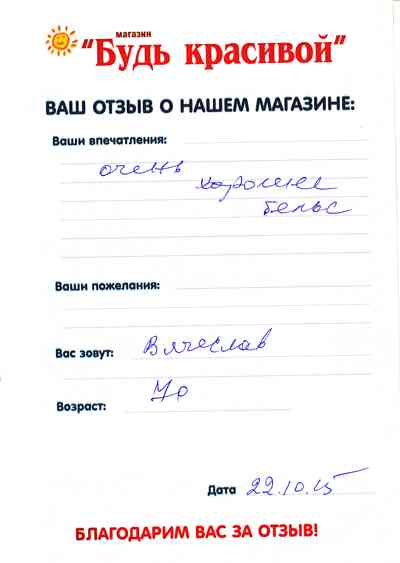 магазин
"Будь красивой"
ВАШ ОТЗЫВ О НАШЕМ МАГАЗИНЕ:
Ваши впечатления:
очень
хорошее
белье
Ваши пожелания:
Вас зовут: Вячеслав
Возраст: 40
Дата 22.10.15
БЛАГОДАРИМ ВАС ЗА ОТЗЫВ!